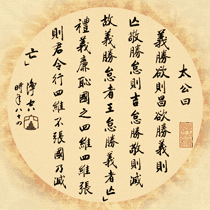 太公曰
義勝欲則昌欲勝義則
亡敬勝怠則吉怠勝敬則滅
故義勝怠者王怠勝敬者亡
禮義廉恥國之四維四維張
則君令行四維不張國乃滅
亡
淨空
時年八十四